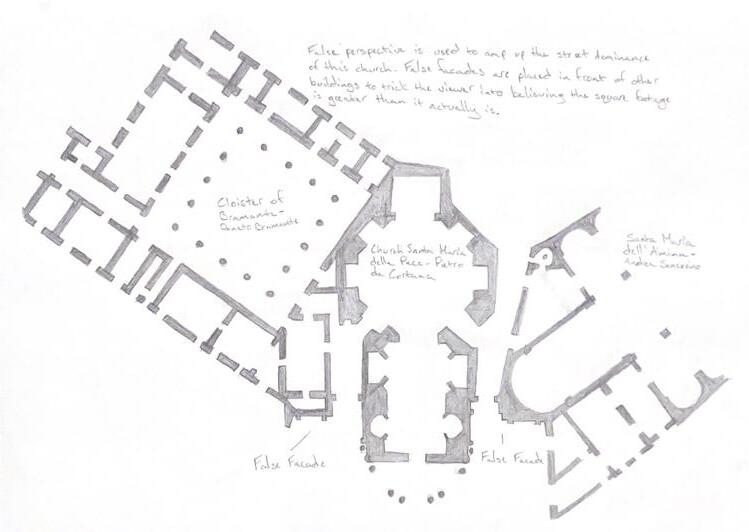 False perspective is used to amp up the street dominance
of this church. False facades are placed in front of other
buildings to trick the viewer into believing the square footage
is greater than it actually is.
Cloister of
Bramante-
Donato Bramante
Church Santa Maria
della Pace - Pietro
da Cortana
Santa Maria
dell'
Andrea Sansovino
False Facade
False Facade